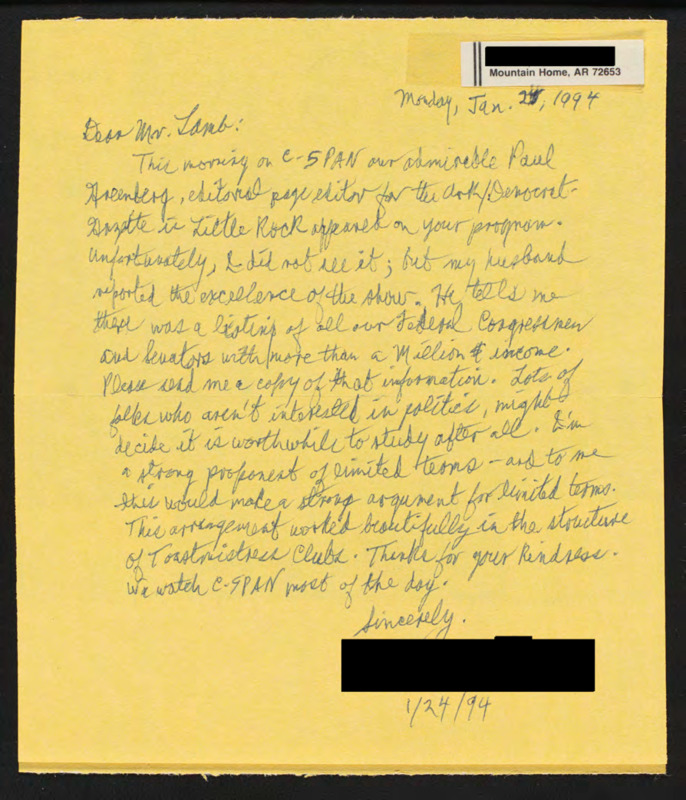 Mountain Home, AR 72653
Monday, Jan. 24, 1994
Dear Mr. Lamb:
This morning on C-SPAN our admirable Paul
Greenberg, editorial page editor for the Ark/Democrat-
Gazette in Little Rock appeared on your program.
Unfortunately, I did not see it; but my husband
reported the excellence of the show. He tells me
there was a listing of all our Federal Congressmen
and Senators with more than a Million $ income.
Please send me a copy of that information. Lots of
folks who aren't interested in politics, might
decide it is worthwhile to study after all. I'm
a strong proponent of limited terms - and to me
this would make a strong argument for limited terms.
This arrangement worked beautifully in the structure
of Toastmistress Clubs. Thanks for your kindness.
We watch C-SPAN most of the day.
Sincerely.
1/24/94